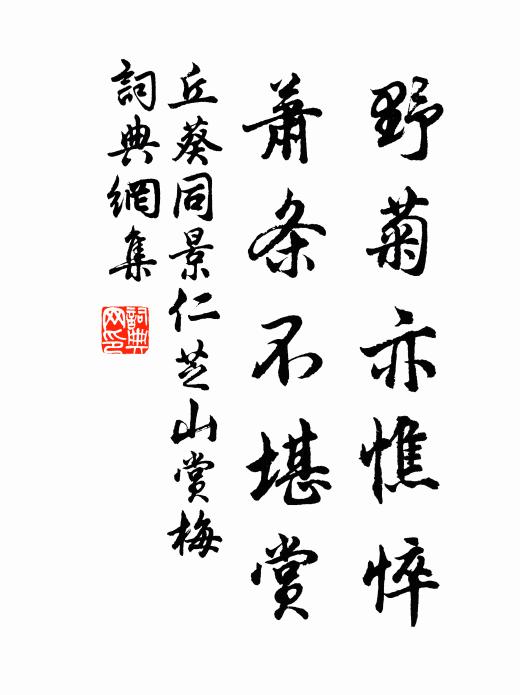 野菊亦憔悴
蕭条不堪賞
丘葵同景仁芝山賞梅
詞典網集
詞典网印